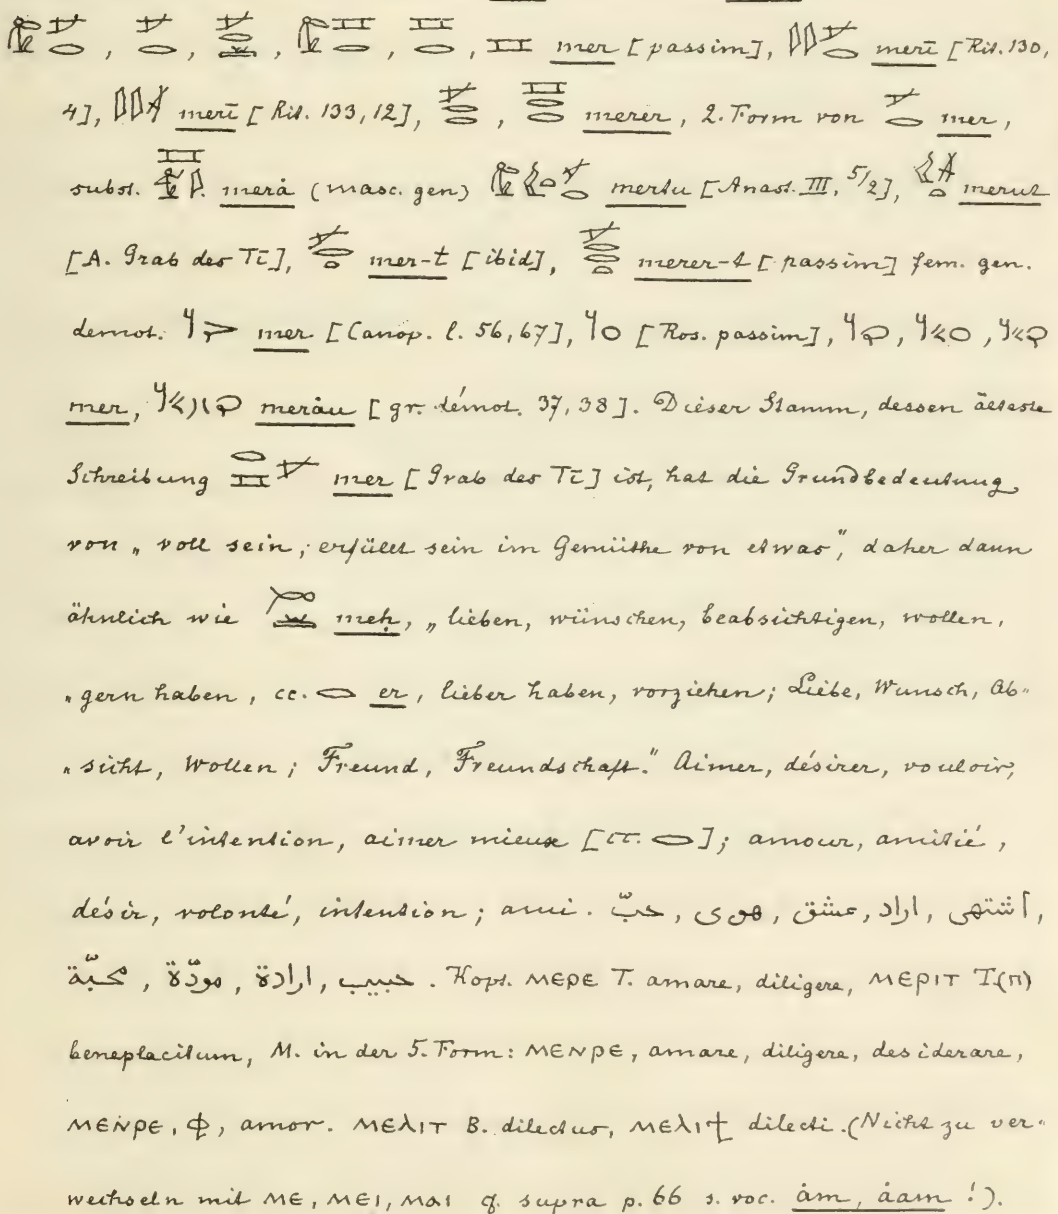 mer [passim], merī [Rit. 130,
4], merī [Rit. 133, 12], , merer, 2. Form von mer,
subst. merȧ (masc. gen) mertu [Anast. III, 5/2], merut
[A. Grab des Tī], mer-t [ibid], merer-t [passim] fem. gen.
demot. mer [Canop. l. 56, 67], [Ros. passim], , ,
mer, merȧu [gr. démot. 37, 38]. Dieser Stamm, dessen älteste
Schreibung mer [Grab des Tī] ist, hat die Grundbedeutung
von „voll sein; erfüllt sein im Gemüthe von etwas”, daher dann
ähnlich wie meḥ, „lieben, wünschen, beabsichtigen, wollen,
„gern haben, cc. er, lieber haben, vorziehen; Liebe, Wunsch, Ab-
„sicht, Wollen; Freund, Freundschaft.” Aimer, désirer, vouloir,
avoir l'intention, aimer mieux [cc. ]; amour, amitié,
désir, volonté, intention; ami. حبّ, هوى, عشق, اراد, اشتهى,
محبّة, مودّة, ارادة, حبيب. Kopt. ⲙⲉⲣⲉ T. amare, diligere, ⲙⲉⲣⲓⲧ T.(ⲡ)
beneplacitum, M. in der 5. Form: ⲙⲉⲛⲣⲉ, amare, diligere, desiderare,
ⲙⲉⲛⲣⲉ, ⲫ, amor. ⲙⲉⲗⲓⲧ B. dilectus, ⲙⲉⲗⲓϯ dilecti. (Nicht zu ver-
wechseln mit ⲙⲉ, ⲙⲉⲓ, ⲙⲁⲓ cf. supra p. 66 s. voc. ȧm, ȧam!).